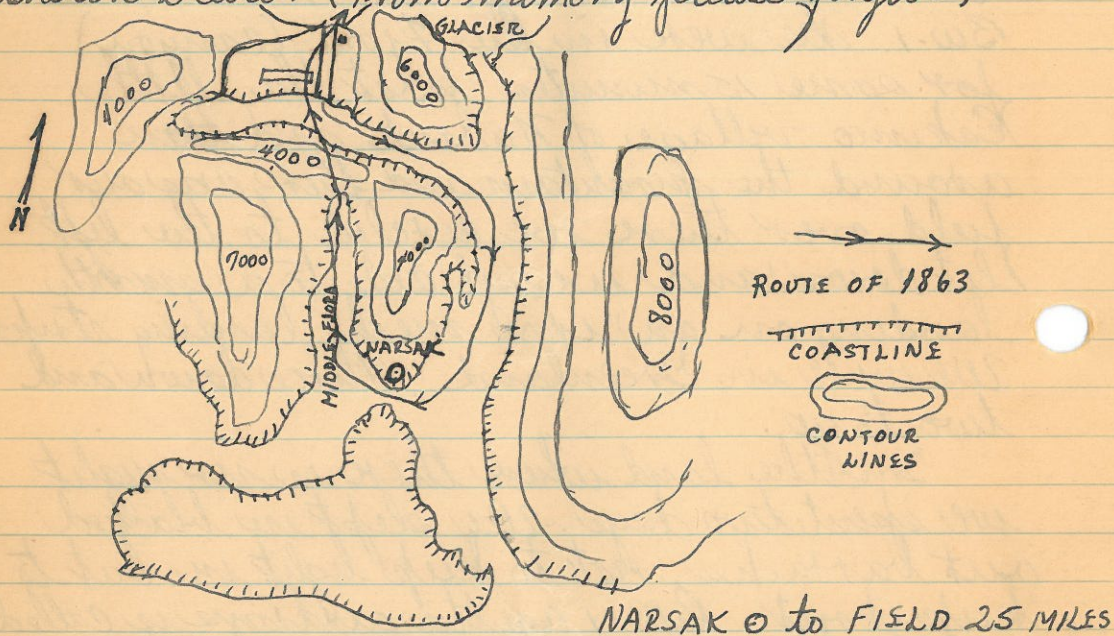 (from memory
GLACIER
6000
4000
4000
N
7000
8000
MIDDLE FIORD
NARSAK
ROUTE OF 1863
COASTLINE
CONTOUR
LINES
NARSAK ⊙ to FIELD 25 MILES